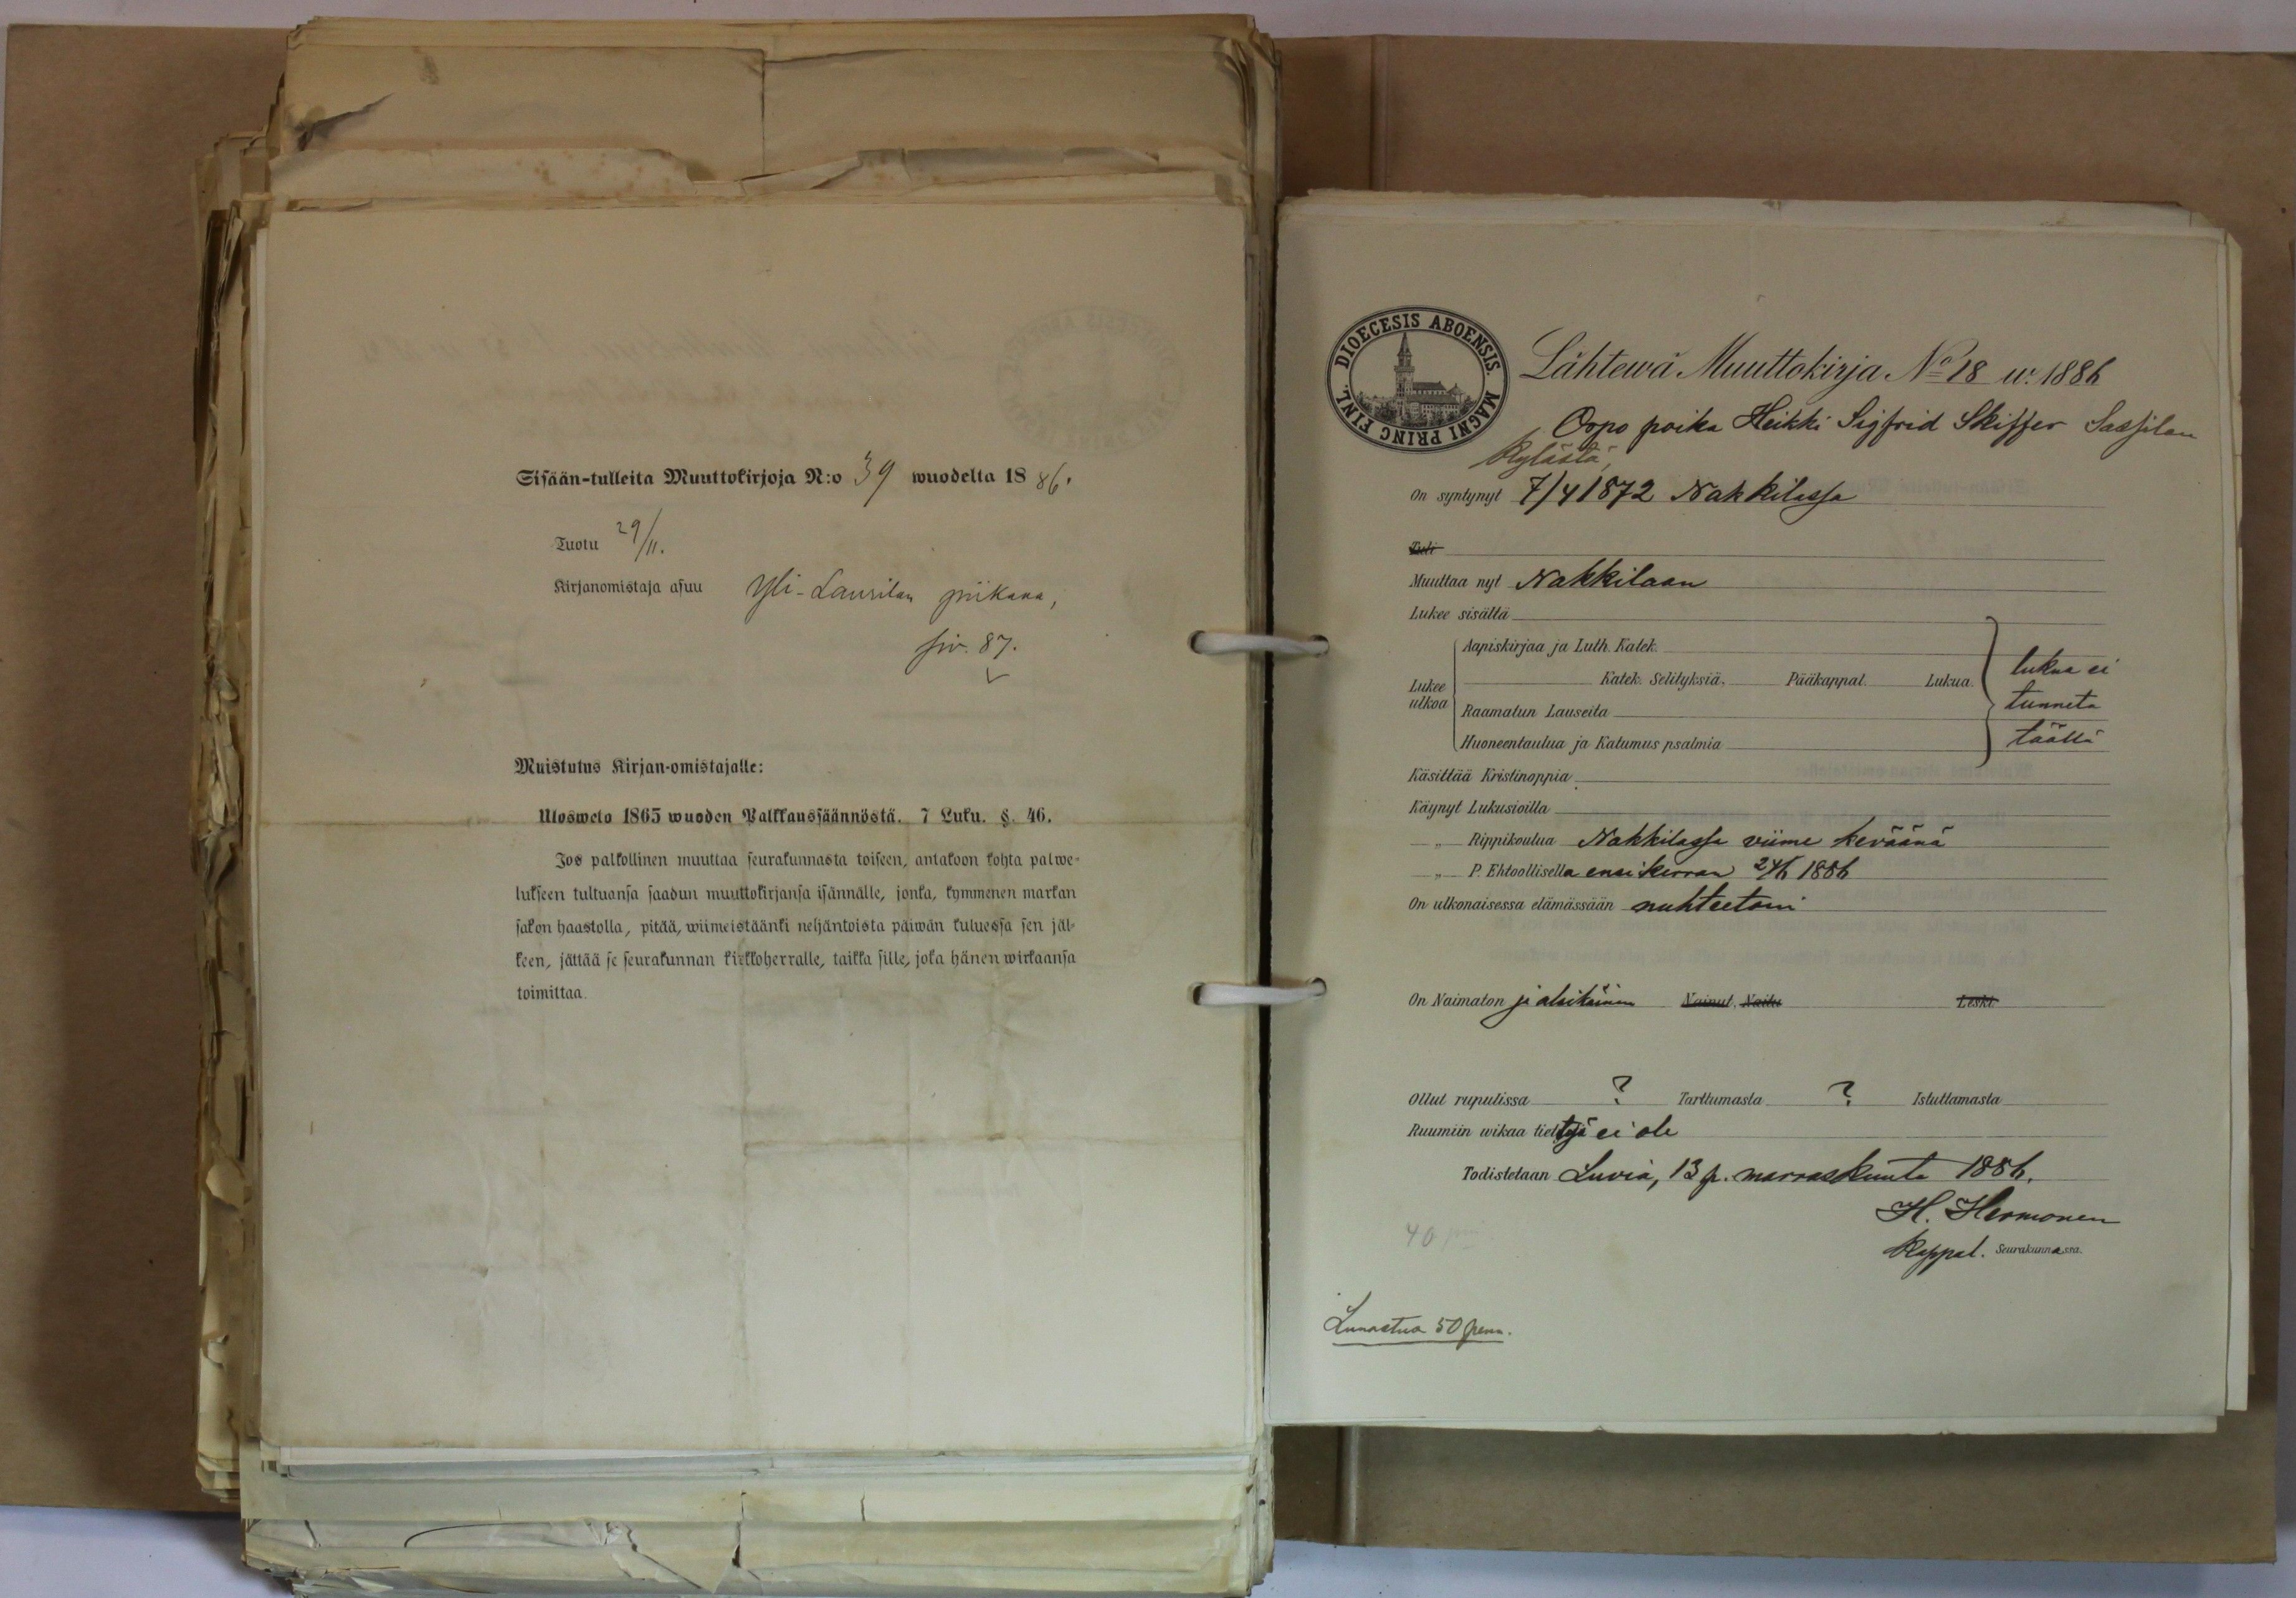 Sisään-tulleita Muuttokirjoja N:o 39 wuodelta 1886.
Tuotu 29/11.
Kirjanomistaja asuu Yli-Laurilan piikana,
siv. 87.
Muistutus Kirjan-omistajalle:
Ulosweto 1865 wuoden Palkkaussäännöstä. 7 Luku. §. 46.
Jos palkollinen muuttaa seurakunnasta toiseen, antakoon kohta palwe-
lukseen tultuansa saadun muuttokirjansa isännälle, jonka, kymmenen markan
sakon haastolla, pitää, wiimeistäänki neljäntoista päiwän kuluessa sen jäl-
keen, jättää se seurakunnan kirkkoherralle, taikka sille, joka hänen wirkaansa
toimittaa.
DIOECESIS ABOENSIS. MAGNI PRINC FINL.
Lähtewä Muuttokirja No 18 w. 1886
Orpo poika Heikki Sigfrid Skiffer Sassilan
kylästä,
On syntynyt 7/4 1872 Nakkilassa
Tuli
Muuttaa nyt Nakkilaan
Lukee sisältä
Aapiskirjaa ja Luth. Katek.
Lukee ulkoa Katek. Selityksiä. Pääkappal. Lukua. lukua ei
Raamatun Lauseita tunneta
Huoneentaulua ja Katumus psalmia täällä
Käsittää Kristinoppia
Käynyt Lukusioilla
„ Rippikoulua Nakkilassa viime keväänä
„ P. Ehtoollisella ensi kerran 24/6 1886
On ulkonaisessa elämässään nuhteetoin
On Naimaton ja alaikäinen Nainut, Naitu Leski
Ollut rupulissa ? Tarttumasta ? Istuttamasta
Ruumiin wikaa tiettyä ei ole
Todistetaan Luvia, 13 p. marraskuuta 1886.
H. Hermonen
Kappal. Seurakunnassa.
40 pni
Lunastus 50 penn.